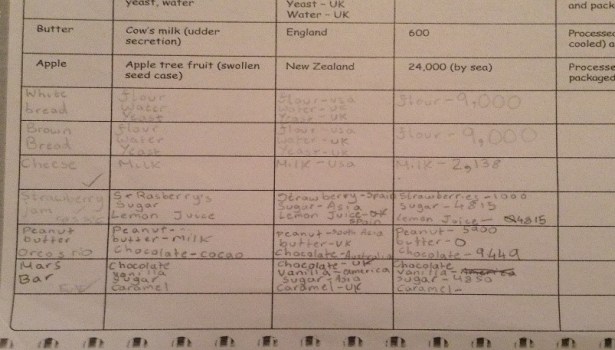 yeast, water
Yeast - UK
Water - UK
and pack
Butter
Cow's milk (udder
secretion)
England
600
Processe
cooled) a
Apple
Apple tree fruit (swollen
seed case)
New Zealand
24,000 (by sea)
Processe
packaged
White
bread
flour
Water
Yeast
flour - usa
water - UK
Yeast - UK
flour - 9,000
Brown
Bread
flour
water
Yeast
flour - usa
water - UK
Yeast - UK
flour - 9,000
Cheese
Milk
Milk - usa
Milk - 2,138
Strawberry
jam
Rasberry's
Sugar
Lemon Jusce
Strawberry - Spain
Sugar - Asia
Lemon Juice -
Spain
Strawberries - 1000
sugar - 4815
lemon Juice - 4815
Peanut
butter
Peanut -
butter - Milk
Peanut - South Asia
butter - UK
Peanut - 5900
butter - 0
Oreo's
Chocolate - cacao
Chocolate - Australia
Chocolate - 9449
Mars
Bar
Chocolate
vanilla
Sugar
Caramel
Chocolate - UK
Vanilla - america
Sugar - Asia
Caramel - UK
Chocolate
vanilla
sugar - 4850
Caramel -